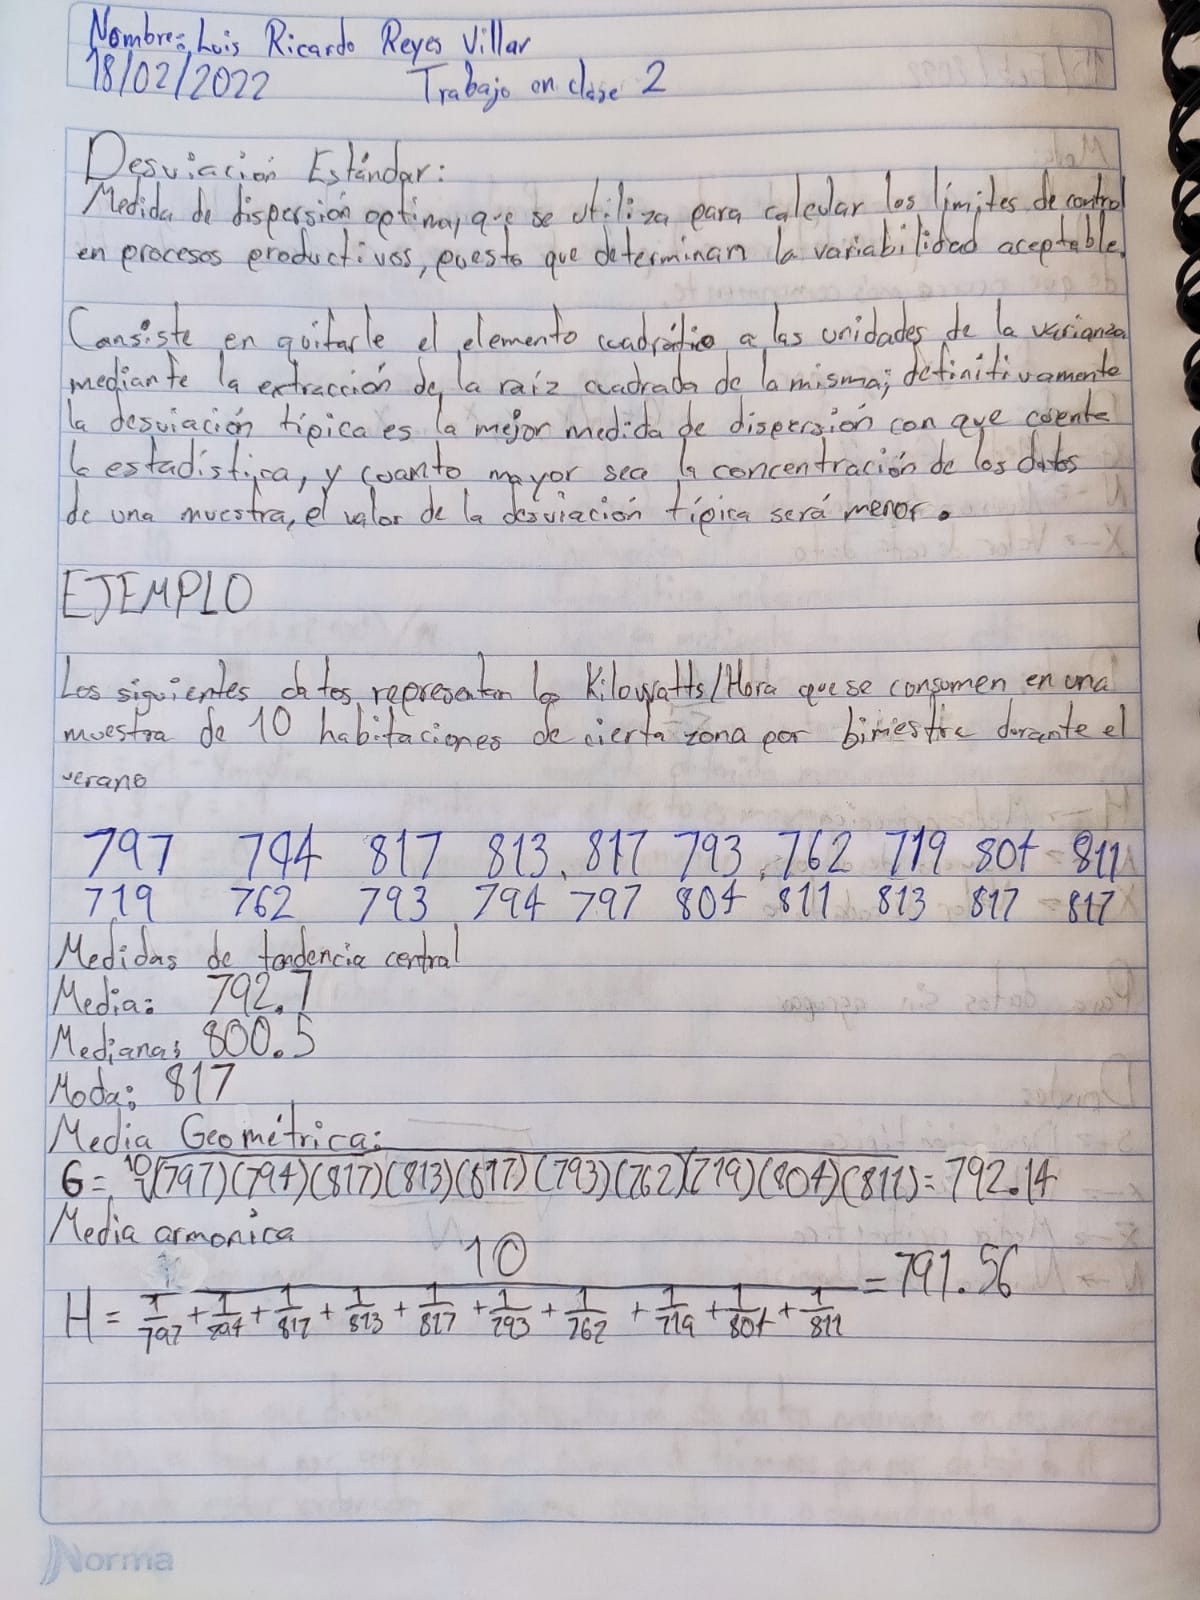 Nombre: Luis Ricardo Reyes Villar
18/02/2022 Trabajo en clase 2
Desviación Estándar:
Medida de dispersión optima, que se utiliza para calcular los límites de control
en procesos productivos, puesto que determinan la variabilidad aceptable.
Consiste en quitarle el elemento cuadrático a las unidades de la varianza
mediante la extracción de la raíz cuadrada de la misma; definitivamente
la desviación típica es la mejor medida de dispersión con que cuenta
la estadística, y cuanto mayor sea la concentración de los datos
de una muestra, el valor de la desviación típica será menor.
EJEMPLO
Los siguientes datos representan los Kilowatts/Hora que se consumen en una
muestra de 10 habitaciones de cierta zona por bimestre durante el
verano
797 794 817 813 817 793 762 719 804 811
719 762 793 794 797 804 811 813 817 817
Medidas de tendencia central
Media: 792.7
Mediana: 800.5
Moda: 817
Media Geométrica:
G = ¹⁰√(797)(794)(817)(813)(817)(793)(762)(719)(804)(811) = 792.14
Media armonica
10
H = 1/797 + 1/794 + 1/817 + 1/813 + 1/817 + 1/793 + 1/762 + 1/719 + 1/804 + 1/811 = 791.56
Norma